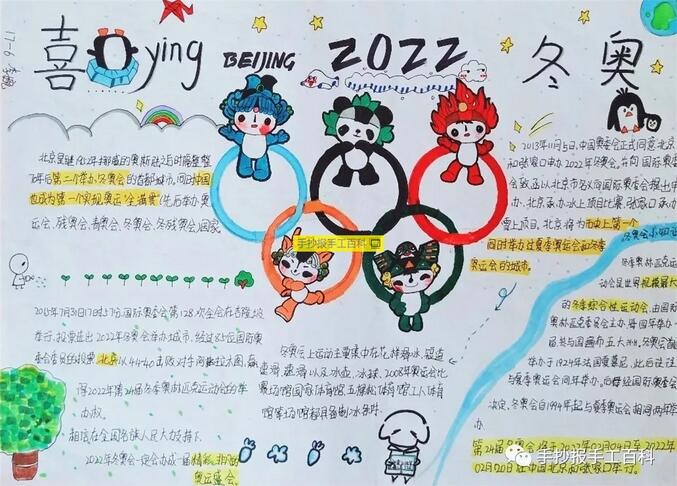 喜ying BEIJING 2022 冬奥
北京是继1952年挪威的奥斯陆之后时隔整整
70年后第二个举办冬奥会的首都城市,同时中国
也成为第一个实现奥运"全满贯"(先后举办奥
运会、残奥会、青奥会、冬奥会、冬残奥会)国家。
2015年7月31日17时57分,国际奥委会第128次全会在吉隆坡
举行,投票选出2022年冬奥会举办城市,经过85位国际奥
委会委员的投票,北京以44:40击败对手阿拉木图,赢
得2022年第24届冬季奥林匹克运动会的举
办权。
相信在全国各族人民大力支持下
2022年冬奥会一定会办成一届精彩、非凡的
奥运盛会。
手抄报手工百科
冬奥会上运动主要集中在花样滑冰、短道
速滑、速滑以及冰壶、冰球。2008年奥运会比
赛场馆国家体育馆、五棵松体育馆、工人体育
馆等场馆都具备制冰条件。
2013年11月5日,中国奥委会正式同意北京
和张家口申办2022年冬奥会,并向国际奥委
会致函以北京市名义向国际奥委会提出申
办,北京承办冰上项目比赛,张家口承办
雪上项目,北京将为历史上第一个
同时举办过夏季奥运会和冬季
奥运会的城市。
冬奥会小知识
冬季奥林匹克运
动会是世界规模最大
的冬季综合性运动会,由国际
奥林匹克委员会主办,每四年举办一
届,参与国遍布五大洲,冬奥会
举办于1924年法国夏慕尼,此后
与夏季奥运会同年举办,后每经国际奥委会
决定,冬奥会自1994年起与夏季奥运会相间两年举
办。
第24届冬奥会将于2022年02月04日至2022年
02月20日在中国北京和张家口举行。
手抄报手工百科